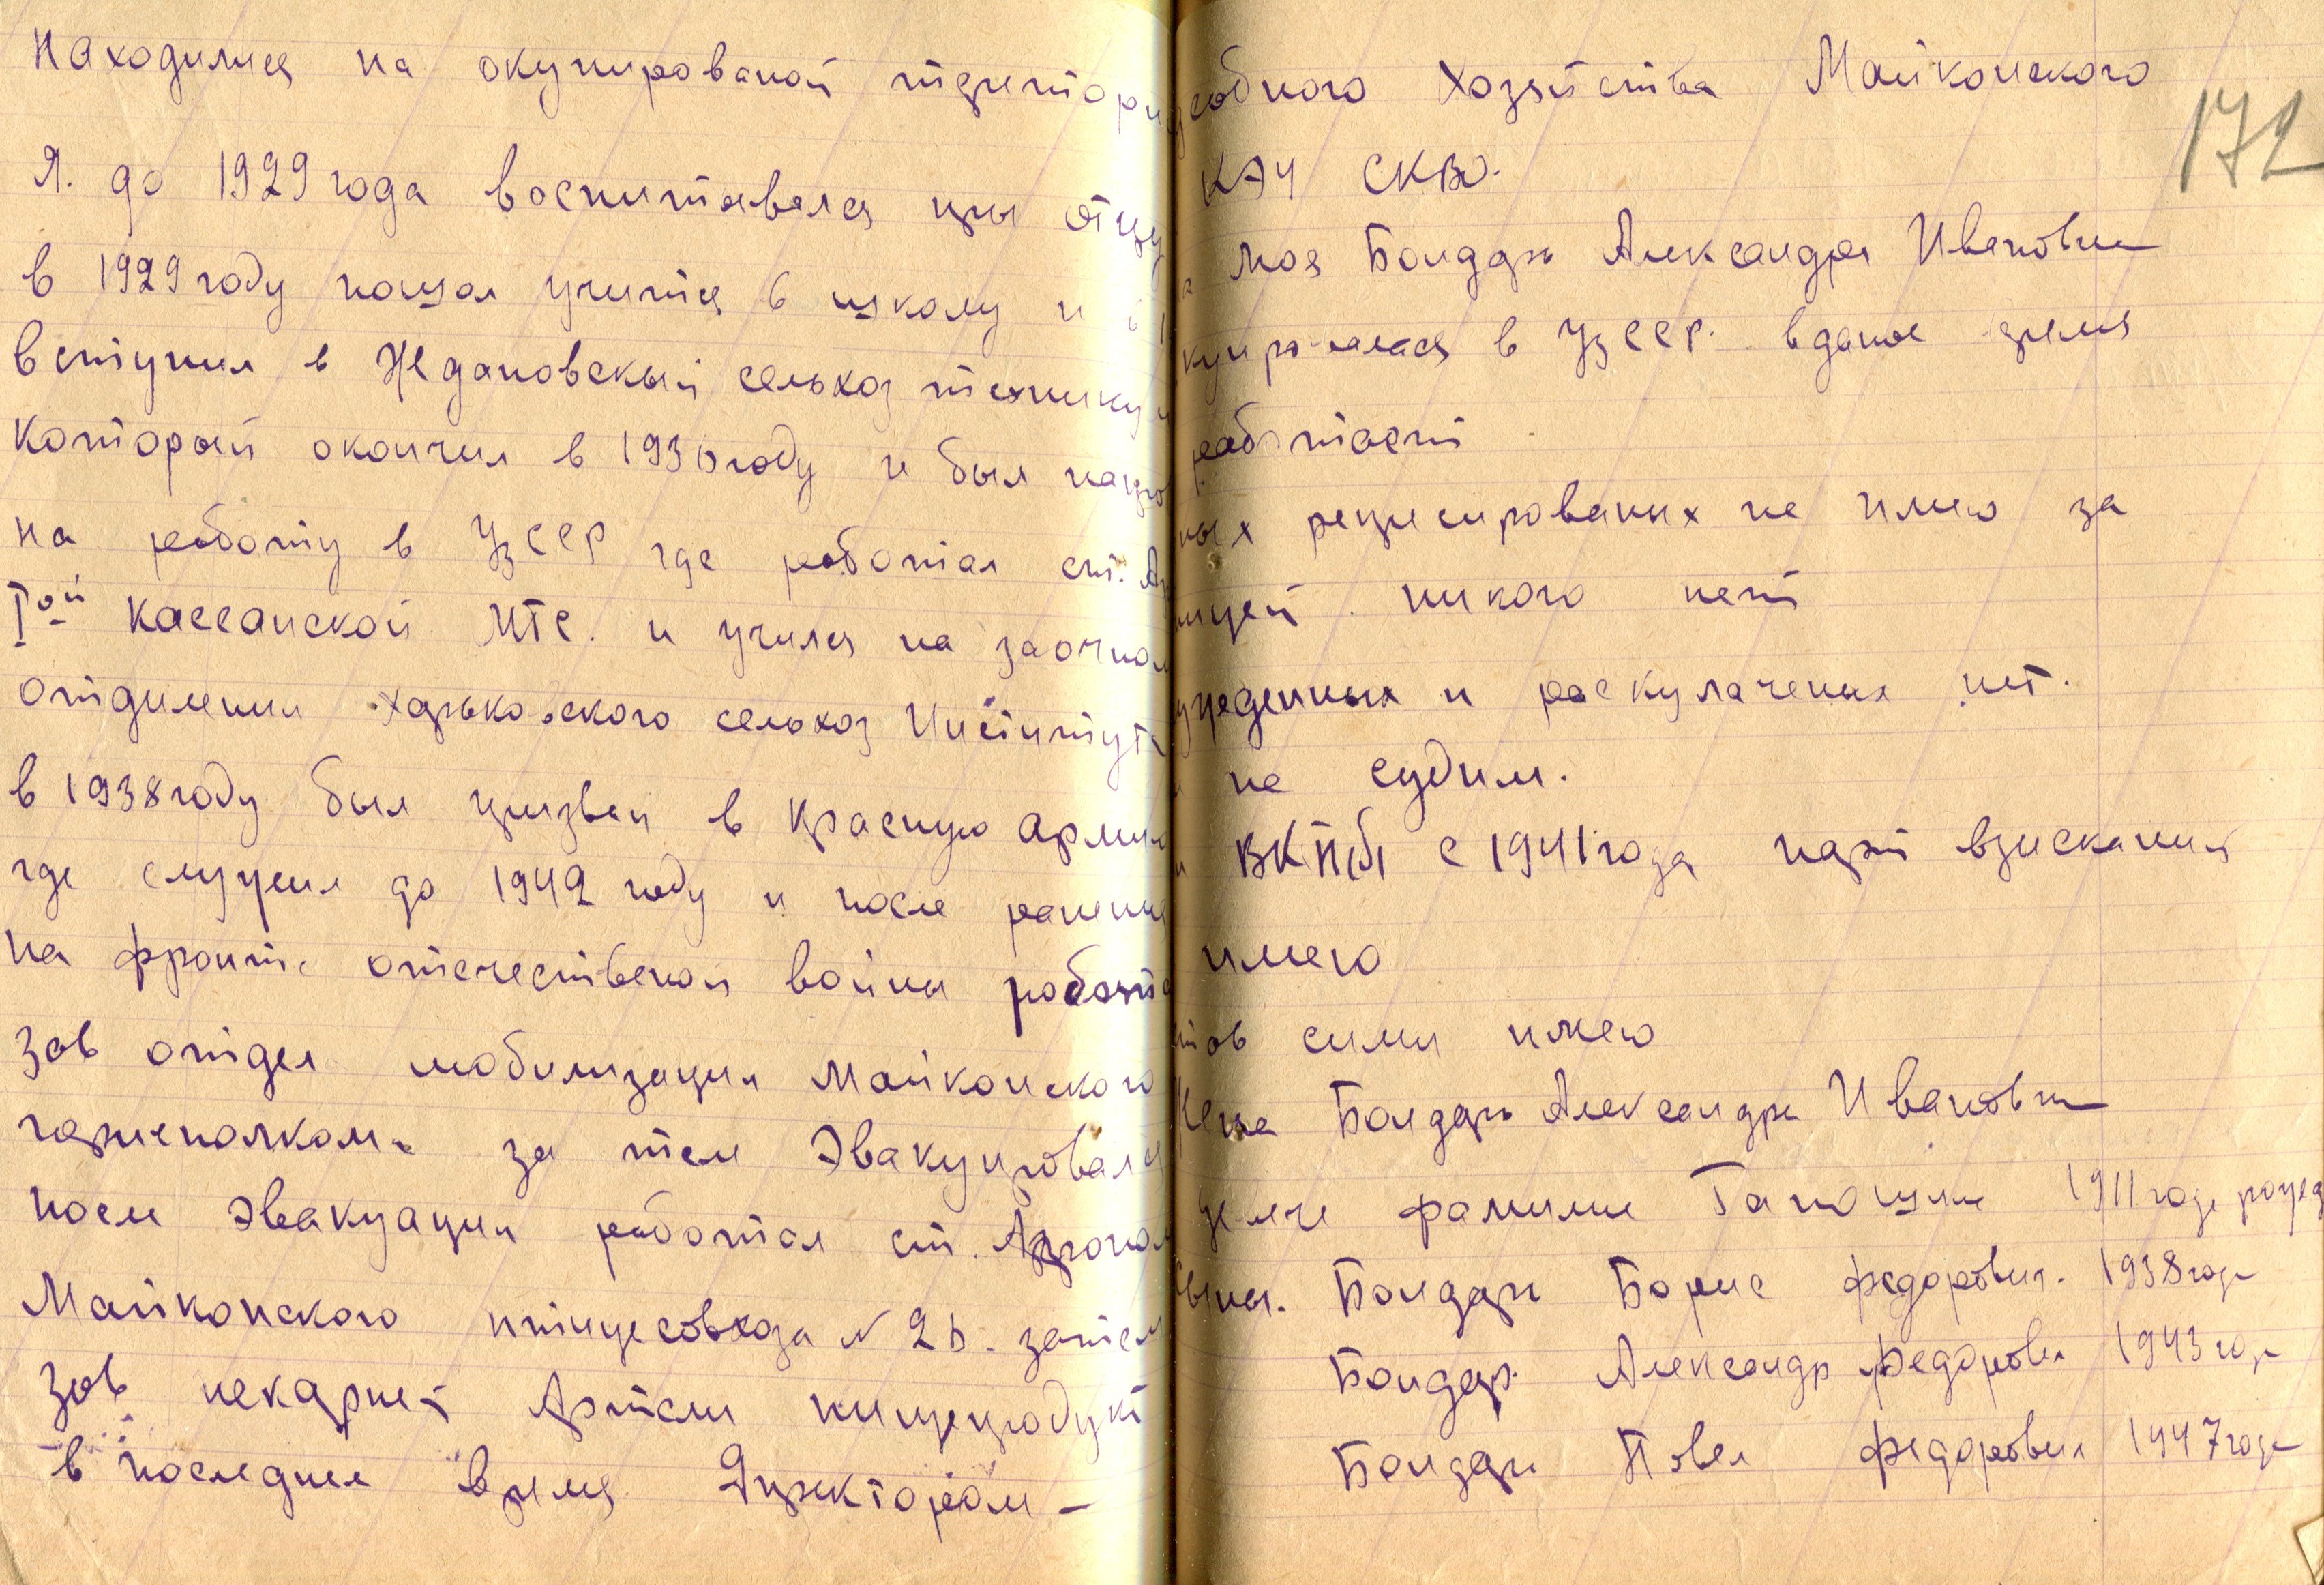 Находился на окупированой територи
Я. до 1929 года воспитавался при отцу
в 1929 году пошол учится в школу и
вступил в Ждановский сельхоз технику
который окончил в 1936 году и был напр
на работу в УзССР где работал ст. Аг
I ой Кассанской МТС. и учился на заочном
отдилении Харьковского сельхоз Института
в 1938 году был призван в красную армию
где служил до 1942 году и после ранения
на фронте отечественой войны работа
Зав отдел мобилизации Майкопского
горисполкома за тем Эвакуировался
после Эвакуации работал ст. Агроном
Майкопского птицесовхоза N 26. затем
Зав пекарней Артели пищепродукт
в последнее время Директором –
172
собного Хозяйства Майкопского
КЭЧ СКВО.
моя Бондарь Александра Ивановна
куировалася в УзССР. в даное время
работает
ных репресированых не имею за
ницей никого нет
ужденных и раскулаченых нет.
не судим.
ВКП(б) с 1941 года парт взискания
имею
тов сими имею
Жена Бондарь Александра Ивановна
фамилии Гапошина 1911 года рожд
сыны. Бондарь Борис Федорович. 1938 года
Бондарь Александр Федорович 1943 года
Бондарь Павел Федорович 1947 года